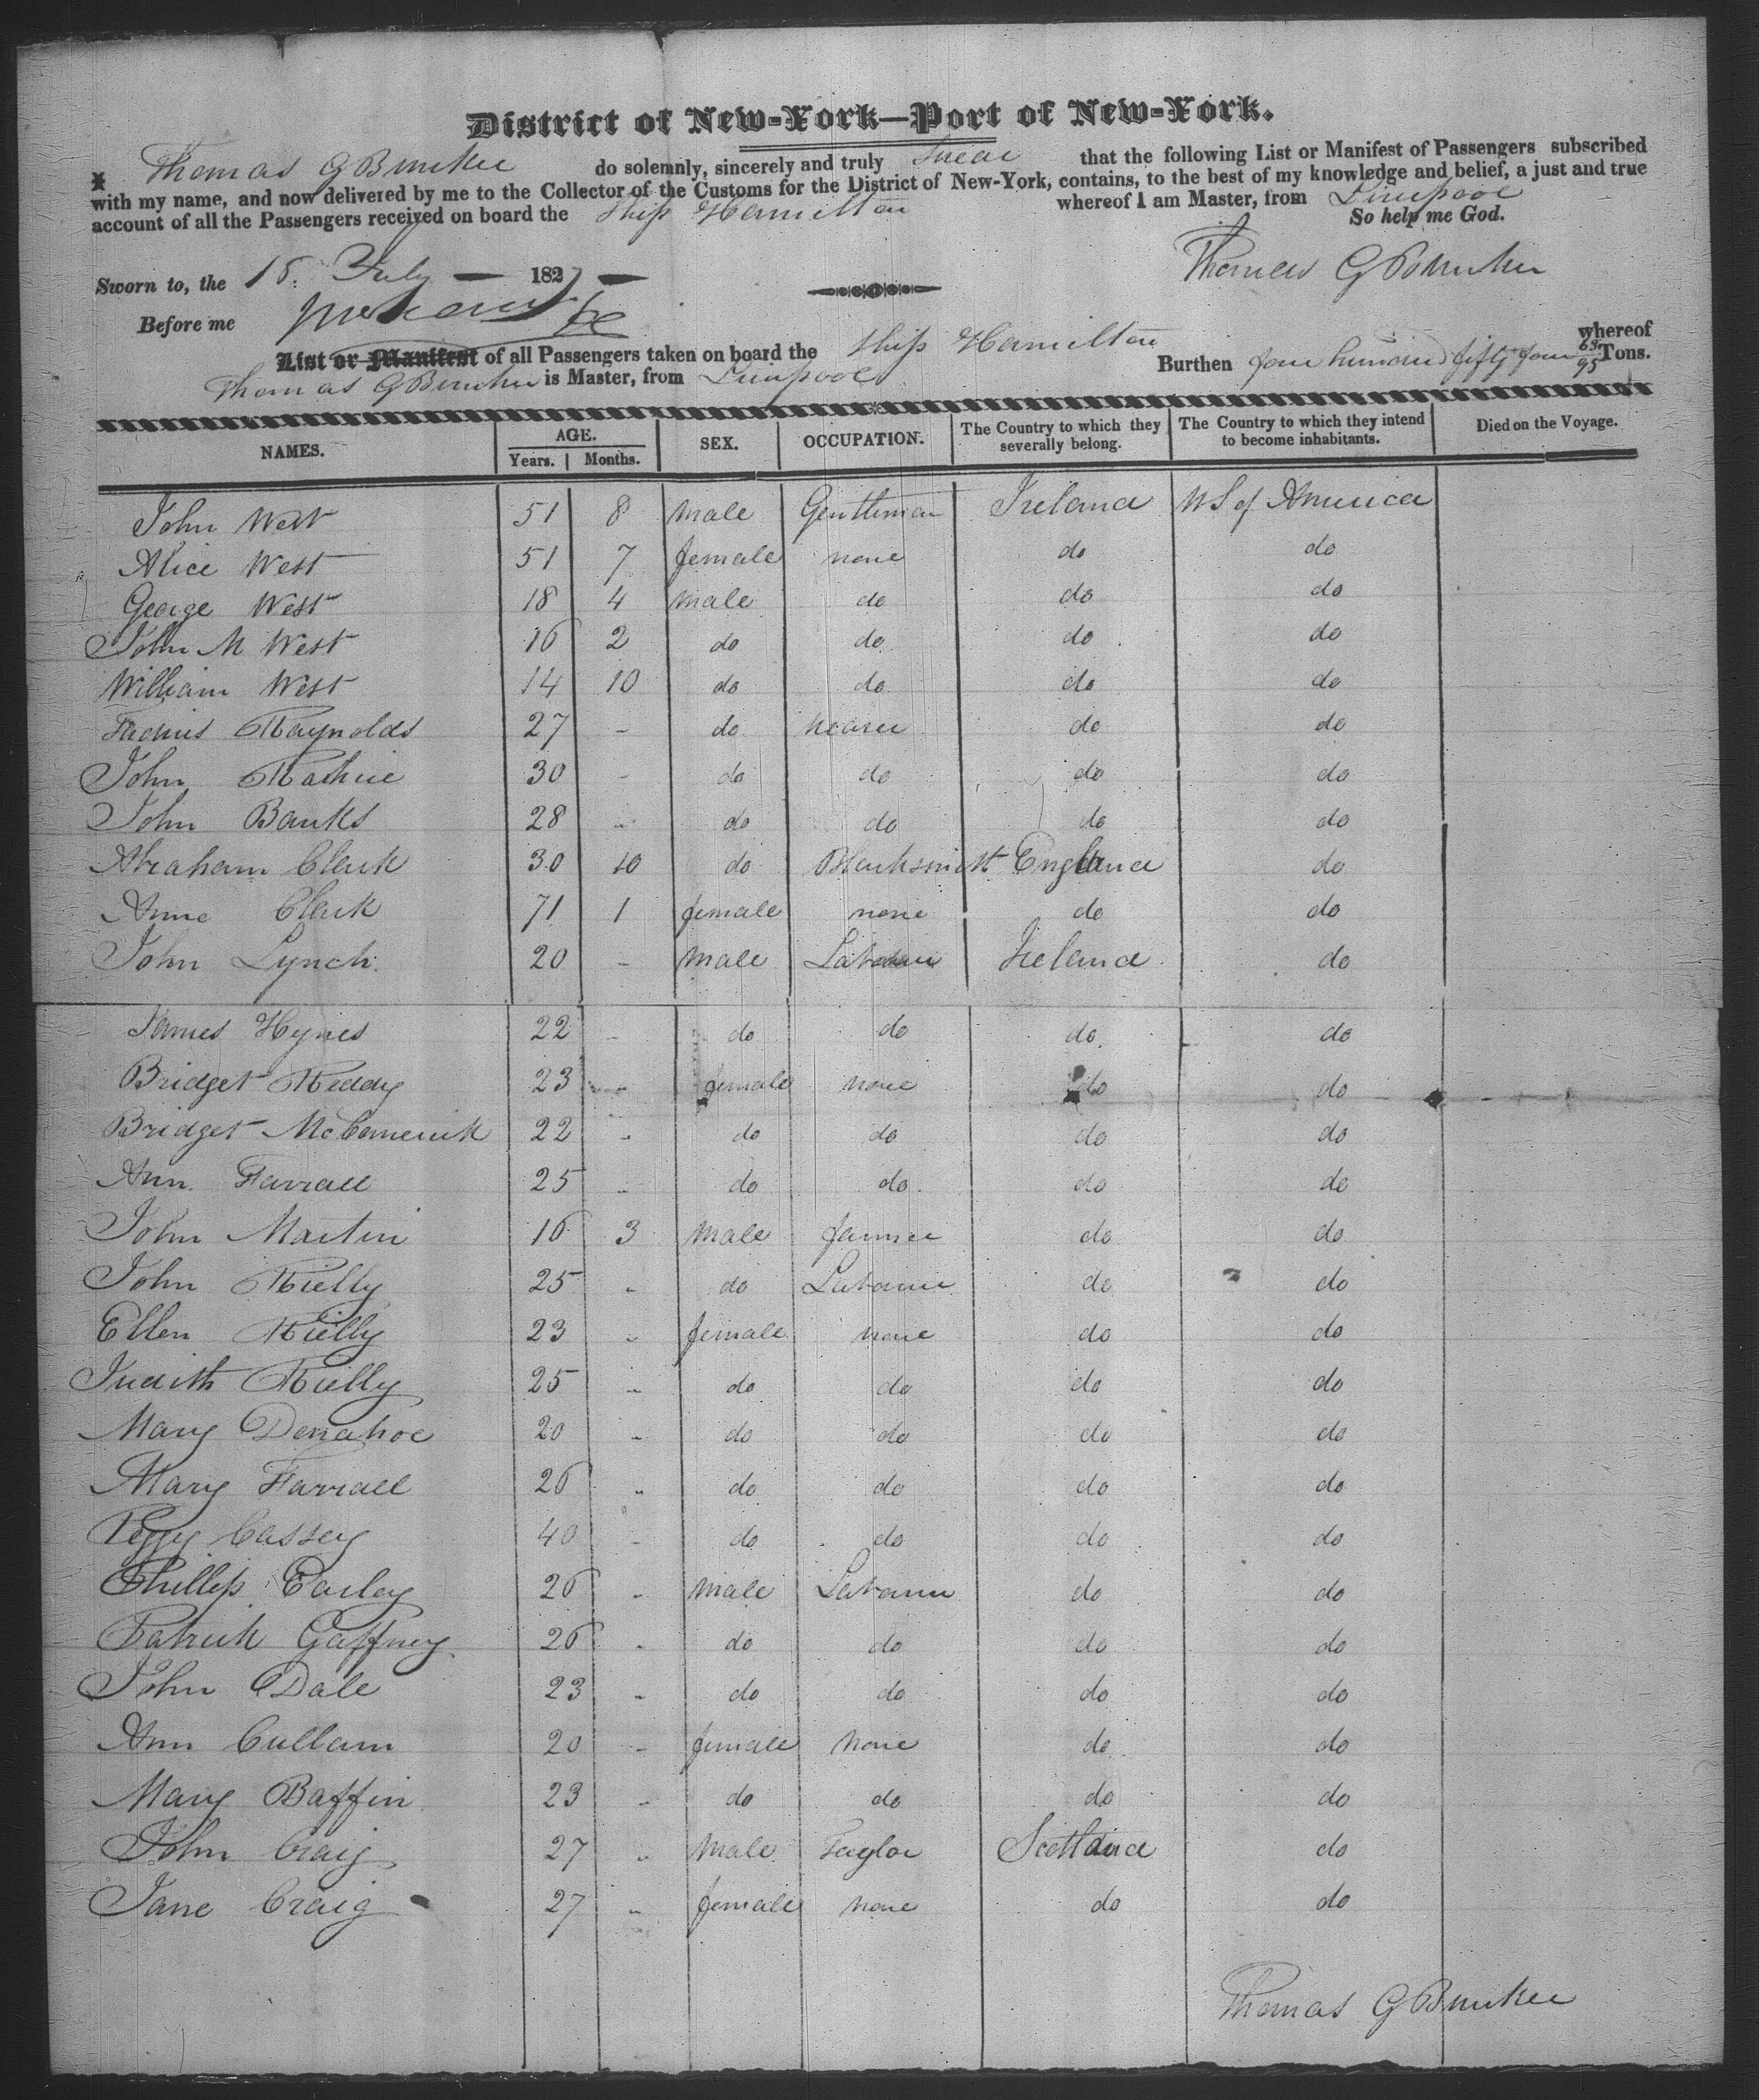 District of New-York—Port of New-York.
I Thomas G Bunker do solemnly, sincerely and truly swear that the following List or Manifest of Passengers subscribed
with my name, and now delivered by me to the Collector of the Customs for the District of New-York, contains, to the best of my knowledge and belief, a just and true
account of all the Passengers received on board the Ship Hamilton whereof I am Master, from Liverpool
So help me God.
Sworn to, the 18. July 1827 Thomas G Bunker
Before me
List or Manifest of all Passengers taken on board the Ship Hamilton whereof
Thomas G Bunker is Master, from Liverpool Burthen four hundred fifty four 63/95 Tons.
NAMES. AGE. Years. Months. SEX. OCCUPATION. The Country to which they severally belong. The Country to which they intend to become inhabitants. Died on the Voyage.
John West 51 8 Male Gentleman Ireland US of America
Alice West 51 7 female none do do
George West 18 4 Male do do do
John M West 16 2 do do do do
William West 14 10 do do do do
Raynolds 27 - do do do
John 30 - do do do do
John Banks 28 - do do do do
Abraham Clerk 30 10 do Blacksmith England do
Anne Clerk 71 1 female none do do
John Lynch 20 - Male Labourer Ireland do
James Hynes 22 - do do do do
Bridget Reddy 23 - female none do do
Bridget 22 - do do do do
Ann Farrall 25 - do do do do
John Martin 16 3 Male farmer do do
John Rielly 25 - do Labourer do do
Ellen Rielly 23 - female none do do
Judith Rielly 25 - do do do do
Mary Donahoe 20 - do do do do
Mary Farrall 26 - do do do do
Peggy Cassey 40 - do do do do
Phillip Earley 26 - Male Labourer do do
Patrick Gaffney 26 - do do do do
John Dale 23 - do do do do
Ann Cullam 20 - female none do do
Mary Baffin 23 - do do do do
John Craig 27 - Male Taylor Scotland do
Jane Craig 27 - female none do do
Thomas G Bunker